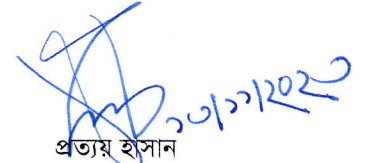 ১৩/১১/২০২৩
প্রত্যয় হাসান